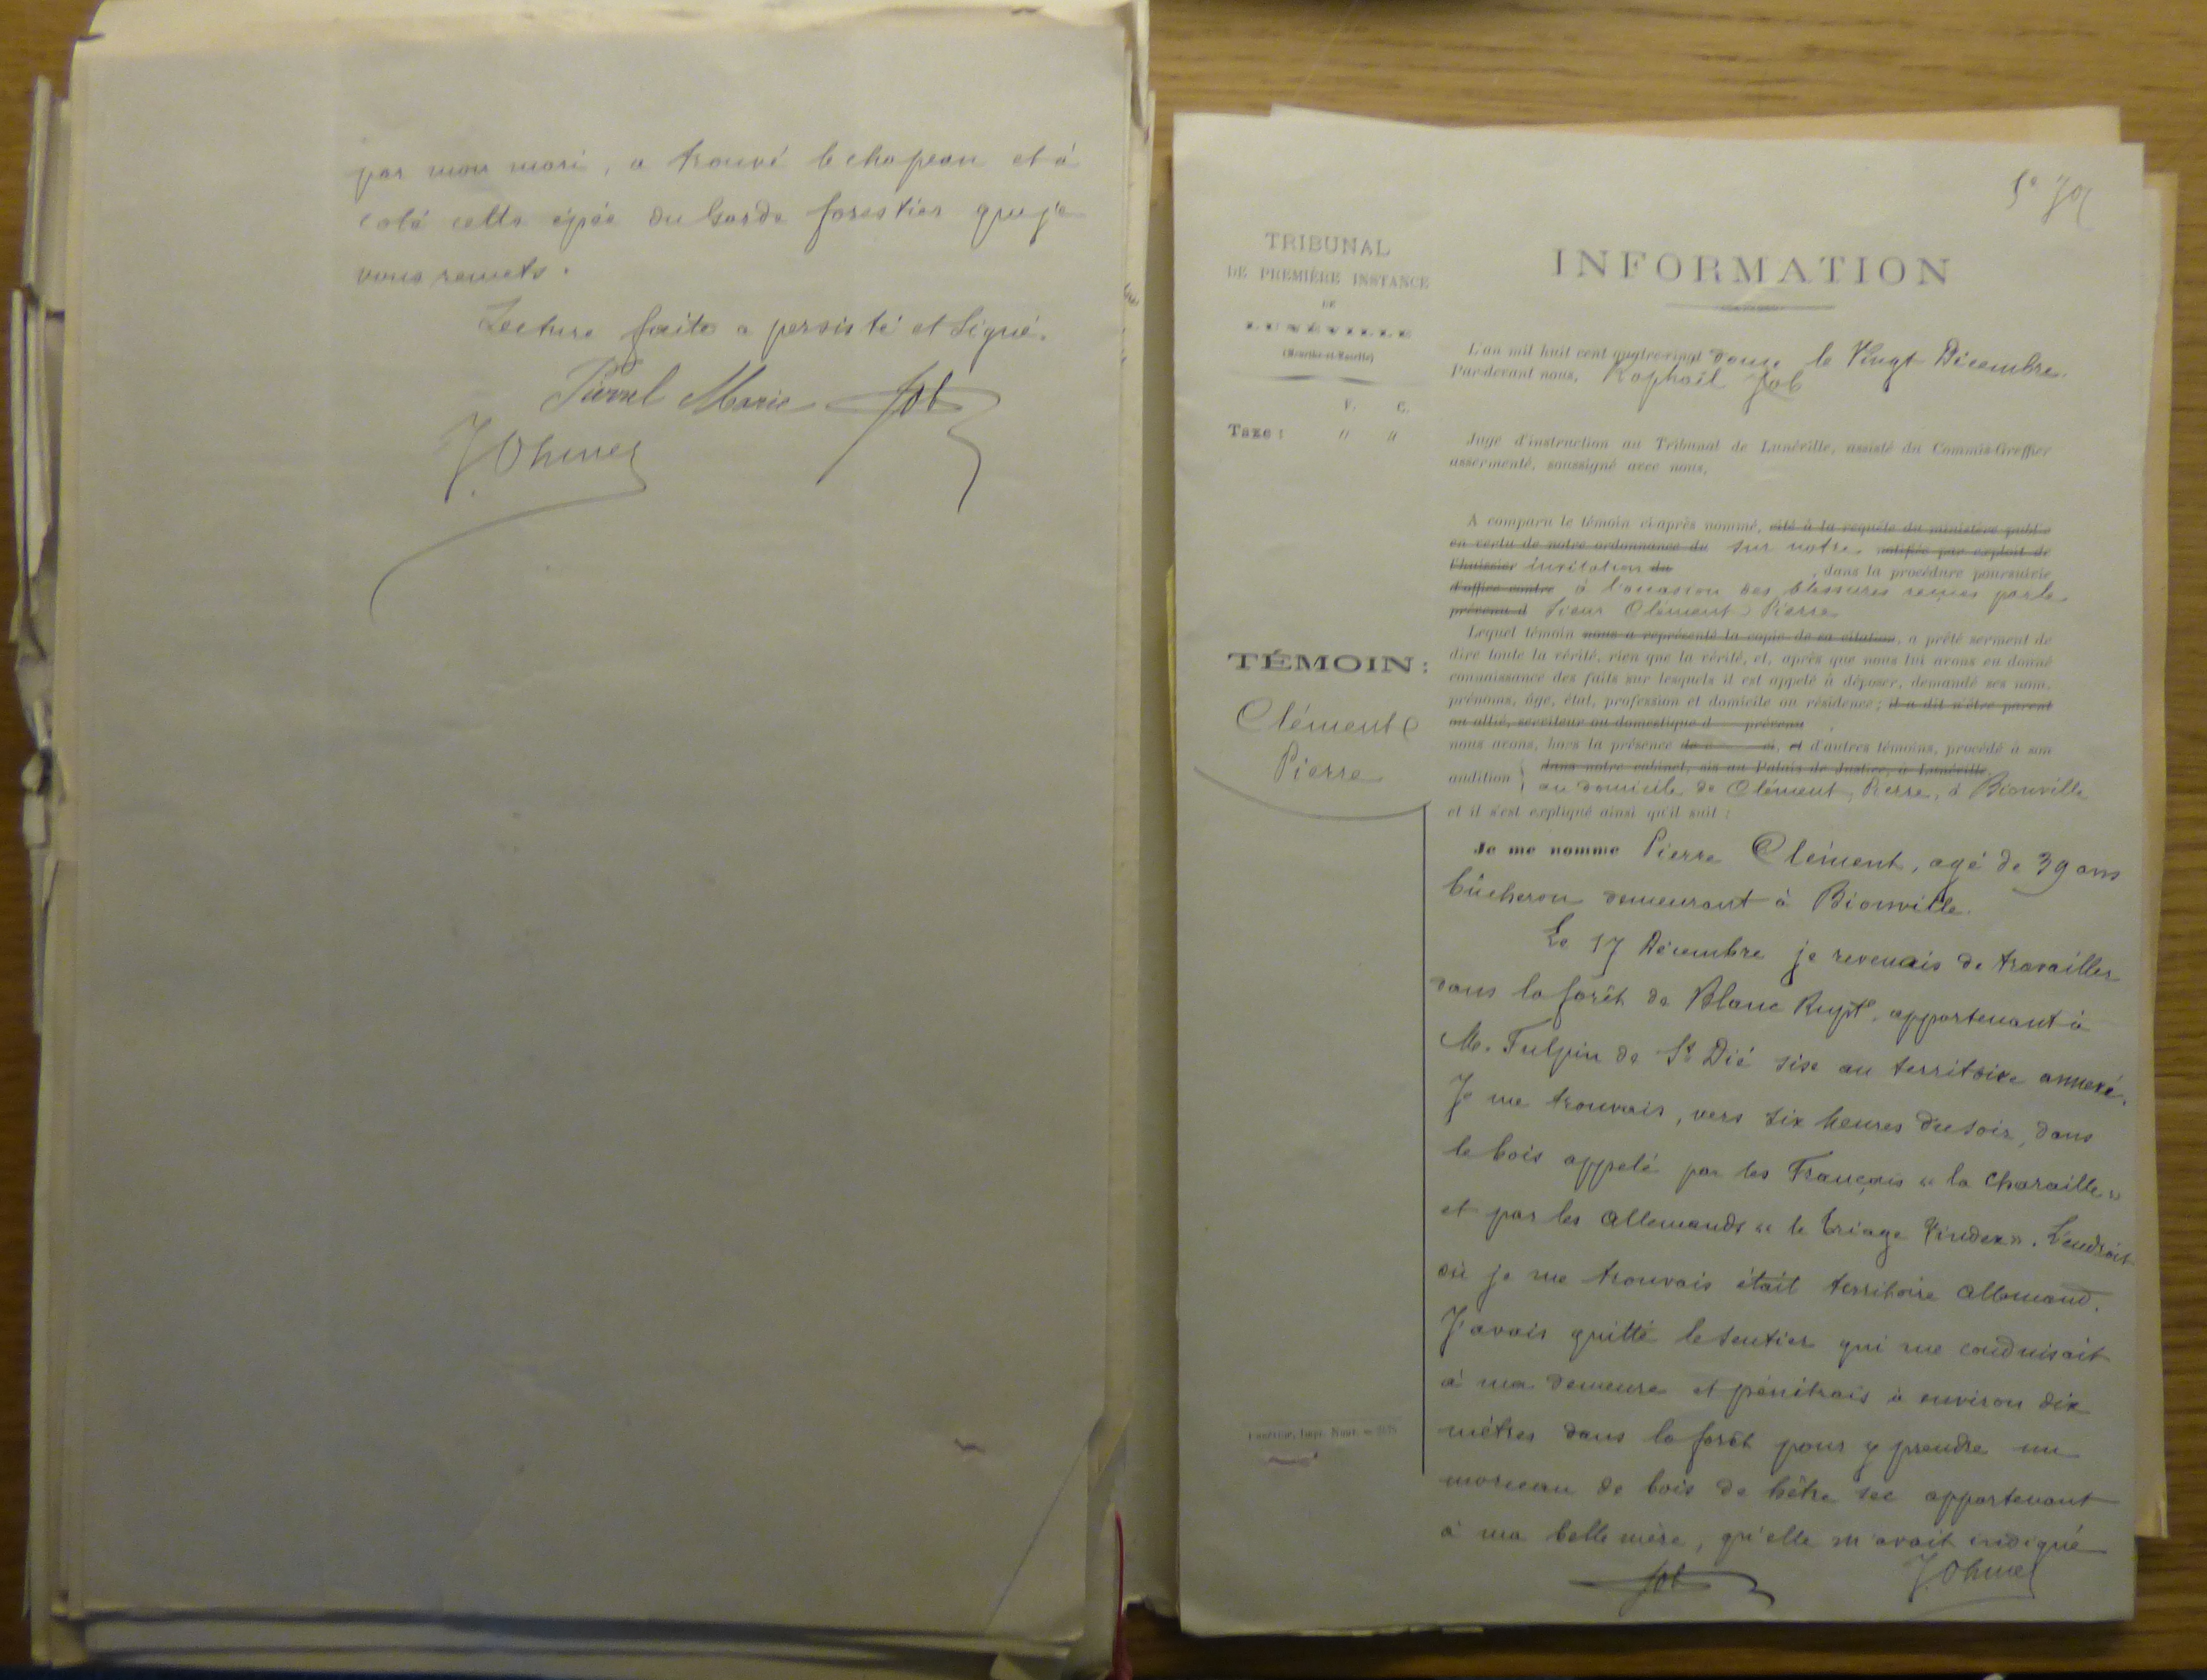 par mon mari, a trouvé le chapeau et à
coté cette épée du Garde forestier que je
vous remets.
Lecture faite a persisté et Signé.
Marie Job
J. Ohmer
INFORMATION
TRIBUNAL
DE PREMIÈRE INSTANCE
DE
LUNÉVILLE
(Meurthe-et-Moselle)
F. C.
Taxe : " "
L'an mil huit cent quatre-vingt douze le Vingt Décembre.
Par-devant nous, Raphaël Job
Juge d'instruction au Tribunal de Lunéville, assisté du Commis-Greffier
assermenté, soussigné avec nous,
A comparu le témoin ci-après nommé, cité à la requête du ministère public
en vertu de notre ordonnance du sur notre notifiée par exploit de
l'huissier invitation du , dans la procédure poursuivie
d'office contre à l'occasion des blessures reçues par le
prévenu d Sieur Clément Pierre
Lequel témoin nous a représenté la copie de sa citation, a prêté serment de
dire toute la vérité, rien que la vérité, et, après que nous lui avons eu donné
connaissance des faits sur lesquels il est appelé à déposer, demandé ses nom,
prénoms, âge, état, profession et domicile ou résidence ; il a dit n'être parent
ou allié, serviteur ou domestique d prévenu
nous avons, hors la présence de ci, et d'autres témoins, procédé à son
audition dans notre cabinet, sis au Palais de Justice, à Lunéville
au domicile de Clément, Pierre, à Bionville
et il s'est expliqué ainsi qu'il suit :
TÉMOIN :
Clément
Pierre
Je me nomme Pierre Clément, agé de 39 ans
bûcheron demeurant à Bionville.
Le 17 Décembre je revenais de travailler
dans la forêt de Blanc Rupt appartenant à
M. Fulpin de St Dié sise au territoire annexé.
Je me trouvais, vers six heures du soir, dans
le bois appelé par les Français « la Charaille »
et par les allemands « le triage ». L'endroit
où je me trouvais était territoire allemand.
J'avais quitté le sentier qui me conduisait
à ma demeure et pénétrais à environ dix
mètres dans la forêt pour y prendre un
morceau de bois de hêtre sec appartenant
à ma belle mère, qu'elle m'avait indiqué
Job J. Ohmer